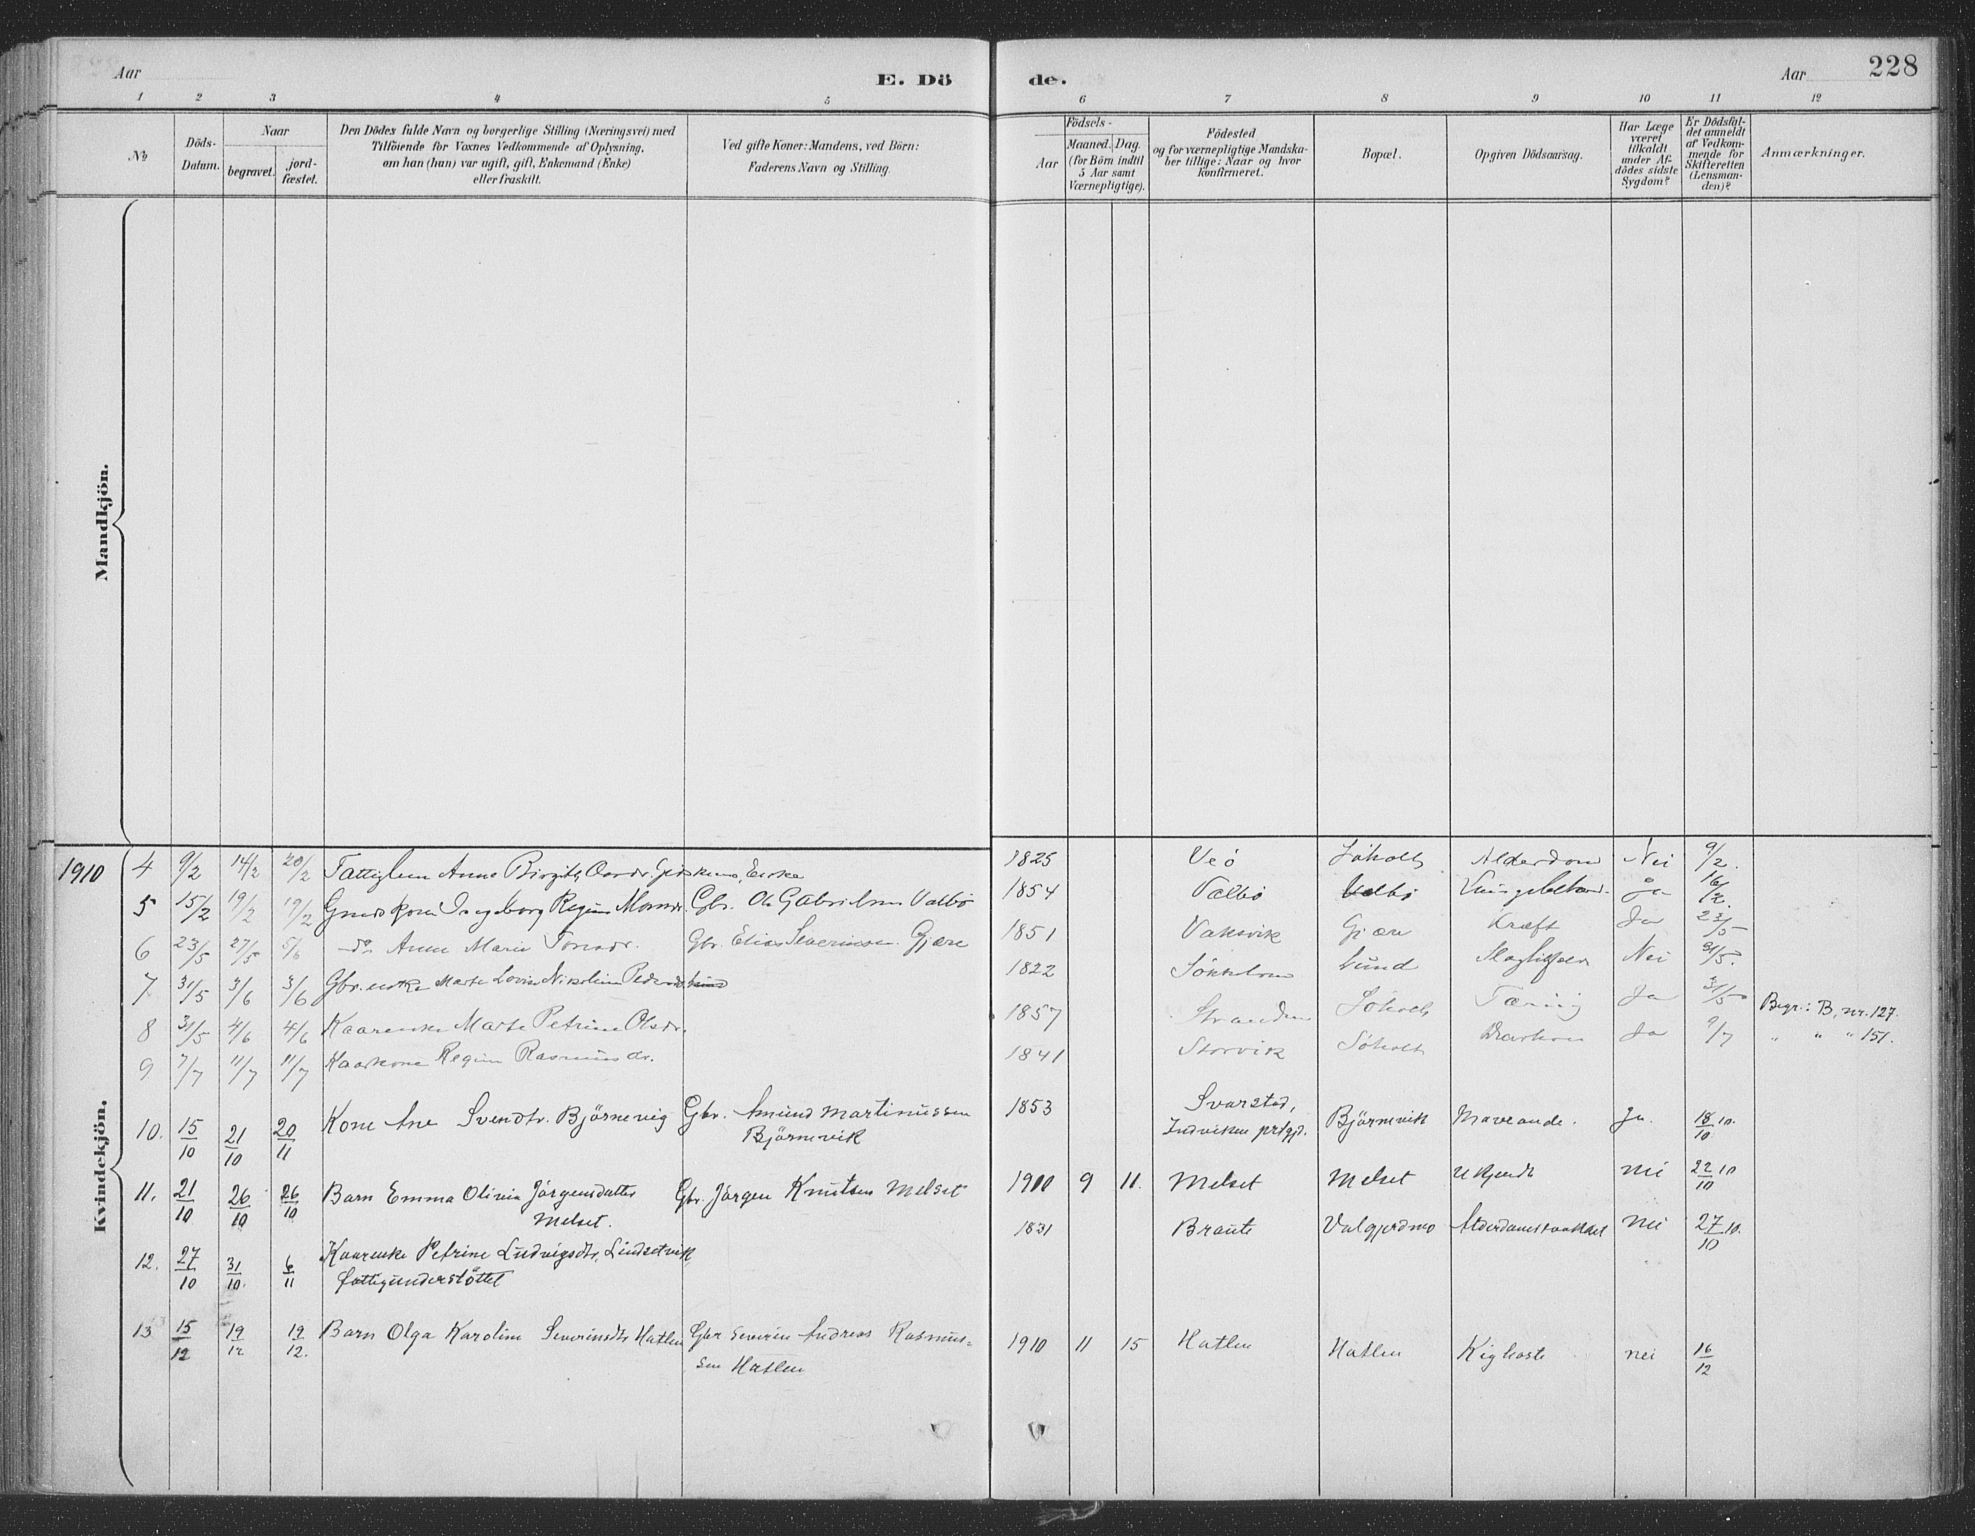 Aar
E. Dö
de.
Aar
228
1 2 3 4 5 6 7 8 9 10 11 12
No
Döds-
Datum.
Naar
begravet.
jord-
fæstet.
Den Dödes fulde Navn og borgerlige Stilling (Næringsvei) med
Tilföiende for Voxnes Vedkommende af Oplysning,
om han (hun) var ugift, gift, Enkemand (Enke)
eller fraskilt.
Ved gifte Koner: Mandens, ved Börn:
Faderens Navn og Stilling.
Födsels-
Aar
Maaned. Dag.
(for Börn indtil
5 Aar samt
Værnepligtige).
Födested
og for værnepligtige Mandska-
ber tillige: Naar og hvor
konfirmeret.
Bopæl.
Opgiven Dödsaarsag.
Har Læge
været
tilkaldt
under Af-
dödes sidste
Sygdom?
Er Dödsfal-
det anmeldt
af Vedkom-
mende for
Skifteretten
(Lensman-
den)?
Anmærkninger.
Mandkjön.
Kvindekjön.
1910 4 9/2 14/2 20/2 Anne Enke 1825 Veö Søholt Alderdom Nei 9/2.
5 15/2 19/2 19/2 Ingeborg Gbr. Valbö 1854 Valbö Valbö Ja 16/2.
6 23/5 27/5 5/6 do Anne Marie Gbr. Elias Severinsen Gjære 1851 Vaksvik Gjære Kræft Ja 23/5
7 31/5 3/6 3/6 Gbr. enke Marte Nikoline 1822 Lund Nei 31/5.
8 31/5 4/6 4/6 Kaarenke Marte Petrine Olsdr. 1857 Stranden Søholt Tæring Ja 31/5 Begr.: B, nr. 127.
9 7/7 11/7 11/7 Kaarkone Rasmusdr. 1841 Storvik Søholt Ja 9/7 " " " 151.
10. 15/10 21/10 20/11 Kone Ane Svendtr. Björnevig Gbr. Amund Martinussen
Björnevik
1853 Svarstad,
Indviken prstgjd. Björnevik Mavesaade. Ja. 18/10 10.
11. 21/10 26/10 26/10 Barn Emma Olivia Jörgensdatter
Melset.
Gbr. Jørgen Knutsen Melset 1910 9 11. Melset Melset Ukjendt nei 22/10 10
12. 27/10 31/10. 6/11 Kaarenke Petrine Ludvigsdtr. Lindsetvik
fattigunderstöttet
1831 Braute Valgjerdmo nei 27/10 10.
13 15/12 19/12 19/12. Barn Olga Karoline Severinsdtr Hatlen Gbr Severin Andreas Rasmus-
sen Hatlen
1910 11 15 Hatlen Hatlen Kighoste nei 16/12